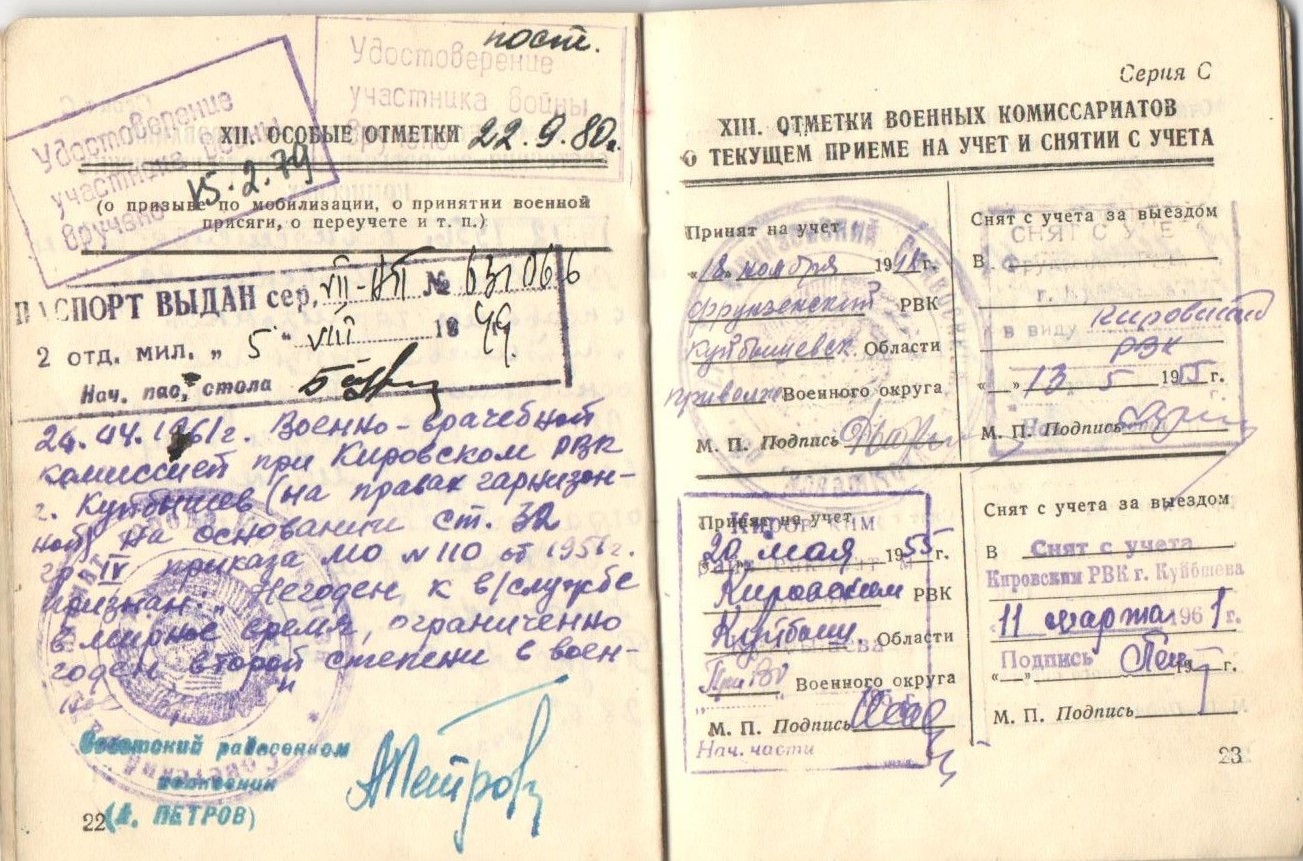 пост.
Удостоверение
участника войны
вручено
22.9.80г.
Удостоверение
участника войны
вручено
15.2.79
XII. ОСОБЫЕ ОТМЕТКИ
(о призыве по мобилизации, о принятии военной
присяги, о переучете и т. п.)
ПАСПОРТ ВЫДАН сер. № 631066
2 отд. мил. „ 5 " VIII 19 49.
Нач. пас, стола
24. 1961г. Военно-врачебной
комиссией при Кировском РВК
г. Куйбышев (на правах гарнизон-
ной) на основании ст. 32
гр IV приказа МО № 110 от 195 г.
признан: „ Негоден к в/службе
в мирное время, ограниченно
годен второй степени в воен-
полковник
(А. ПЕТРОВ)
АПетров
22
Серия С
XIII. ОТМЕТКИ ВОЕННЫХ КОМИССАРИАТОВ
О ТЕКУЩЕМ ПРИЕМЕ НА УЧЕТ И СНЯТИИ С УЧЕТА
Принят на учет
„18" ноября 194 г.
Фрунзенский РВК
Куйбышевск. Области
приволж Военного округа
М. П. Подпись
Снят с учета за выездом
СНЯТ С УЧЕ
В
г.
в виду Кировский
РВК
„ " 13 5 1955 г.
М. П. Подпись
Принят на учет
„20" мая 1955 г.
Кировским РВК
Куйбыш. Области
ПриВО Военного округа
М. П. Подпись
Нач. части
Снят с учета за выездом
В Снят с учета
Кировским РВК г. Куйбшева
„11 марта 1961 г.
Подпись
„ " 19 г.
М. П. Подпись
23